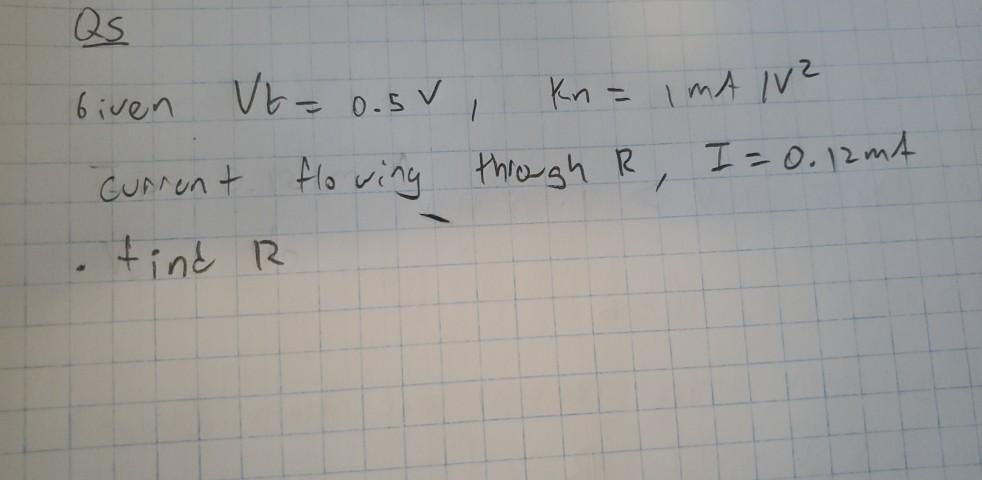 Q5
Given Vt = 0.5 V, Kn = 1 mA /V²
current flowing through R, I = 0.12mA
. find R